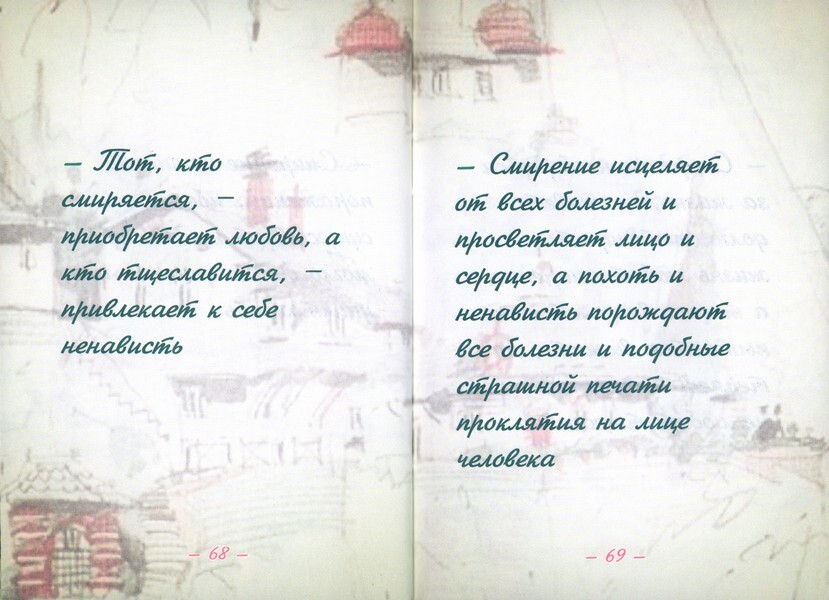 — Тот, кто
смиряется, —
приобретает любовь, а
кто тщеславится, —
привлекает к себе
ненависть
— 68 —
— Смирение исцеляет
от всех болезней и
просветляет лицо и
сердце, а похоть и
ненависть порождают
все болезни и подобны
страшной печати
проклятия на лице
человека
— 69 —